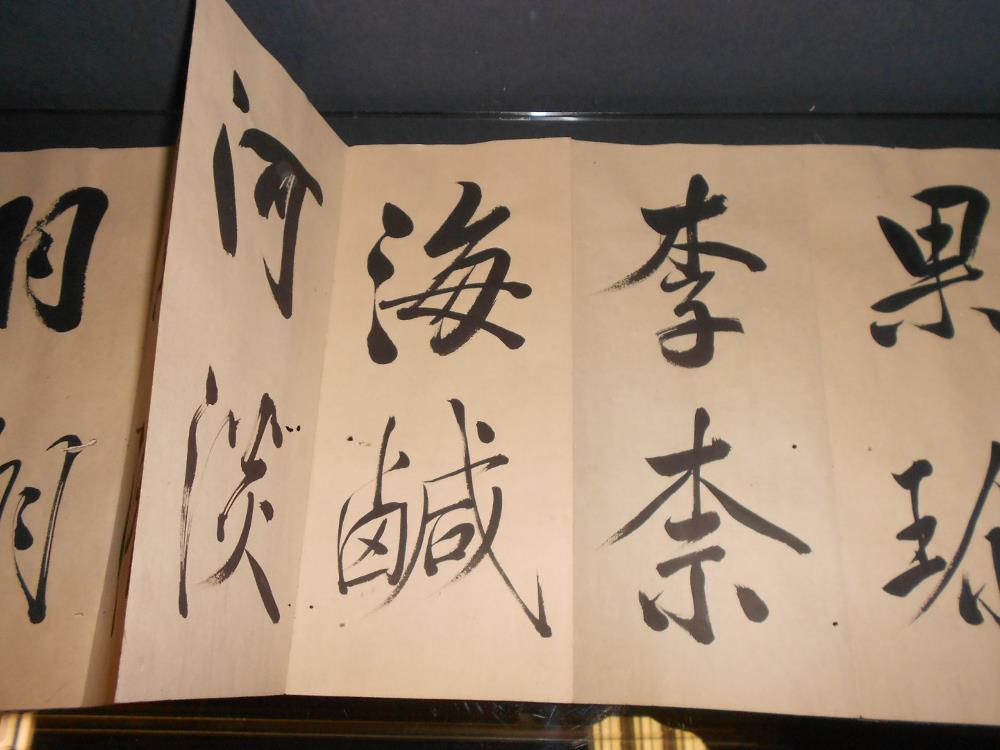 果珍
李柰
海鹹
河淡